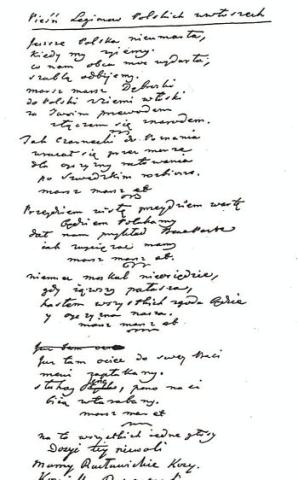 Pieśń Legionów Polskich we Włoszech
Jeszcze Polska nie umarła,
kiedy my żyjemy.
co nam obca moc wydarła,
szablą odbijemy.
marsz marsz Dąbrowski
do Polski z ziemi włoski
za Twoim przewodem
złączem się z narodem.
Jak Czarnecki do Poznania
wracał się przez morze
dla ojczyzny ratowania
po Szwedzkim rozbiorze.
marsz marsz et
Przejdziem Wisłę przejdziem Wartę
będziem Polakamy
dał nam przykład Bonaparte
jak zwyciężać mamy
marsz marsz et
niemiec moskal nieosiędzie,
gdy jąwszy pałasza,
hasłem wszystkich zgoda będzie
y ojczyzna nasza.
marsz marsz et
Już tam ociec do swej Basi
mówi zapłakany.
słuchaj jeno, pono nasi
biją w tarabany.
marsz marsz et
na to wszystkich jedne głosy
Dosyć tej niewoli
Mamy Racławickie Kosy.